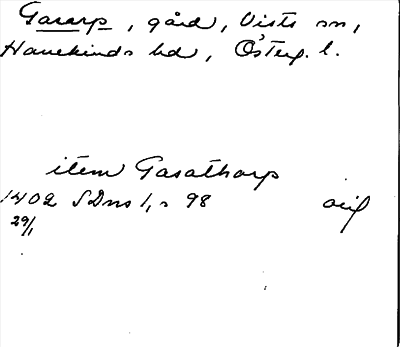 Gasarp, gård, Vists sn,
Hanekinds hd, Österg. l.
item Gasathorp
1402 SDns 1, s 98 orig
29/1